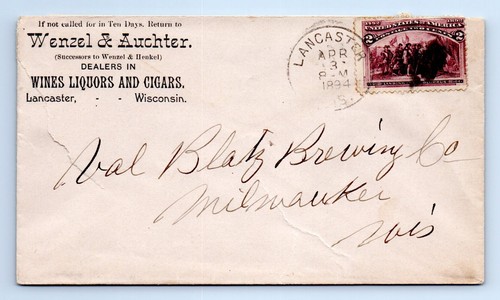 If not called for in Ten Days, Return to
Wenzel & Auchter.
(Successors to Wenzel & Henkel)
DEALERS IN
WINES LIQUORS AND CIGARS.
Lancaster, - - Wisconsin.
LANCASTER
APR
3
8-M
1894
S.
UNITED STATES OF AMERICA
2 2
Val Blatz Brewing Co
Milwaukee
Wis